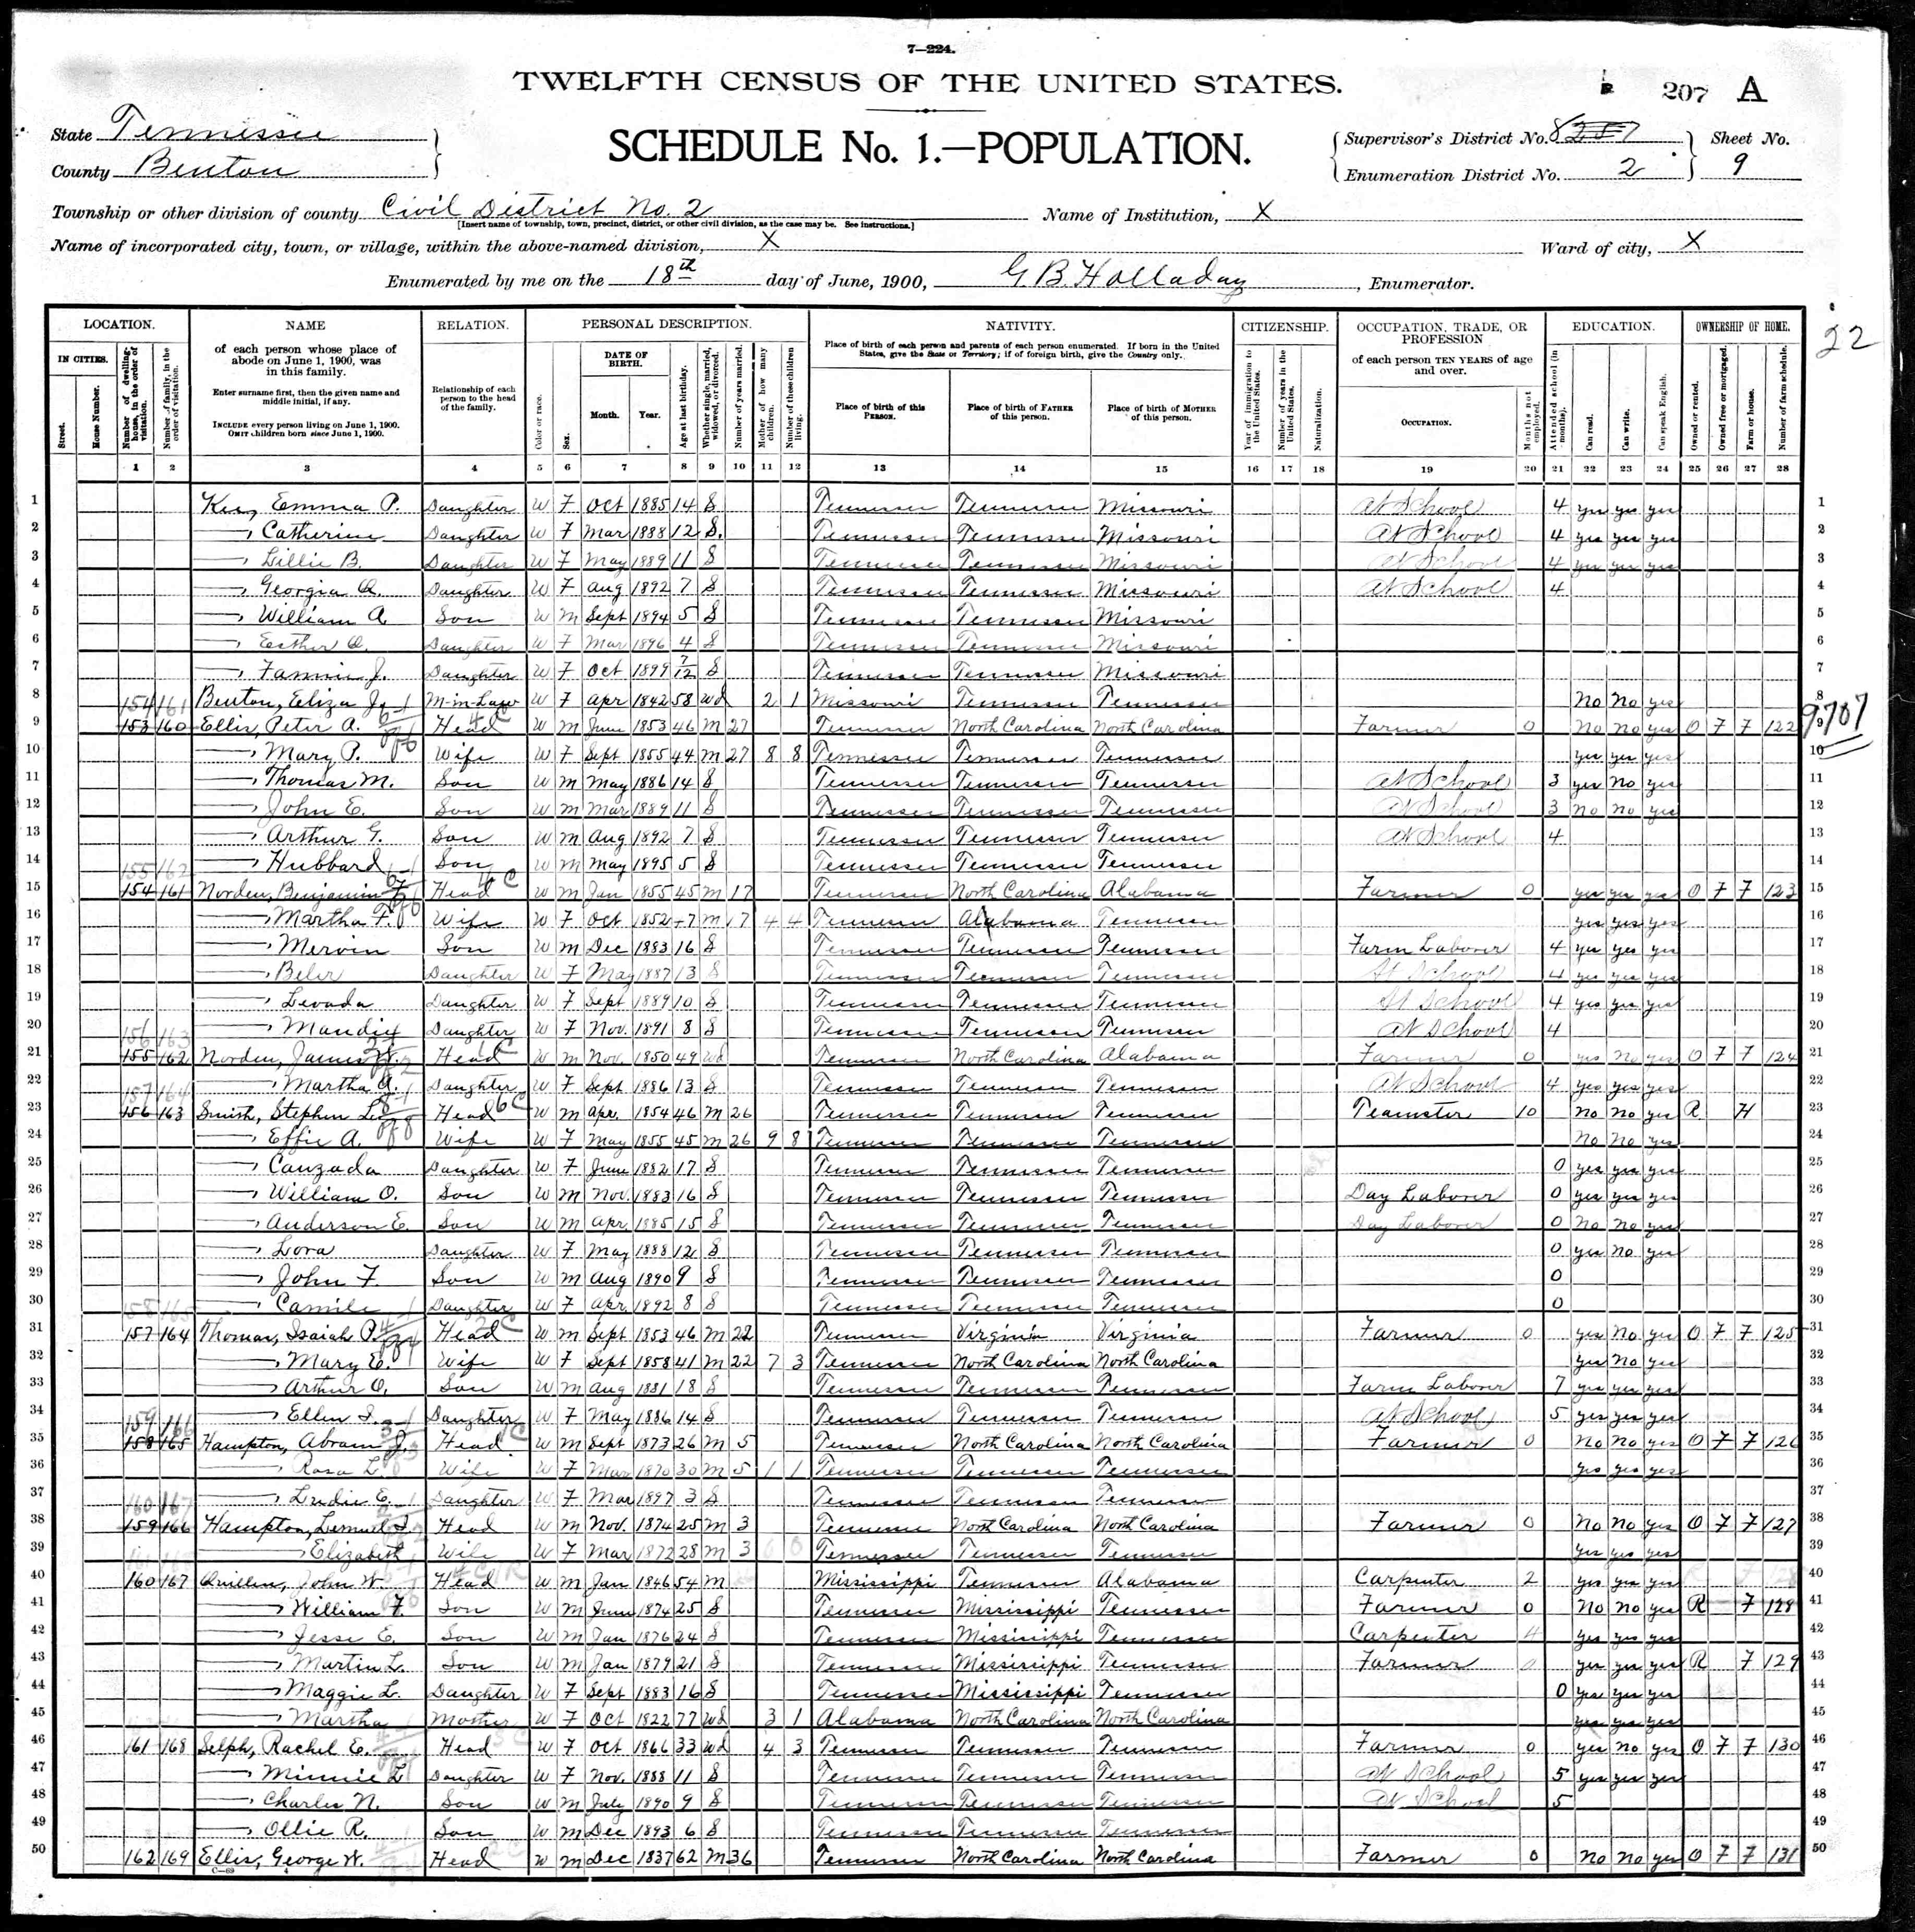 7—224.
TWELFTH CENSUS OF THE UNITED STATES.
207 A
State Tennessee
SCHEDULE No. 1.—POPULATION.
Supervisor's District No. 8 Sheet No.
County Benton
Enumeration District No. 2 9
Township or other division of county Civil District No. 2 Name of Institution, X
[Insert name of township, town, precinct, district, or other civil division, as the case may be. See instructions.]
Name of incorporated city, town, or village, within the above-named division, X Ward of city, X
Enumerated by me on the 18th day of June, 1900, G B. Holladay, Enumerator.
22
LOCATION. NAME RELATION. PERSONAL DESCRIPTION. NATIVITY. CITIZENSHIP. OCCUPATION, TRADE, OR PROFESSION EDUCATION. OWNERSHIP OF HOME.
IN CITIES. Street. House Number. Number of dwelling-house, in the order of visitation. Number of family, in the order of visitation.
of each person whose place of abode on June 1, 1900, was in this family.
Enter surname first, then the given name and middle initial, if any.
INCLUDE every person living on June 1, 1900. OMIT children born since June 1, 1900.
Relationship of each person to the head of the family.
Color or race. Sex. DATE OF BIRTH. Month. Year. Age at last birthday. Whether single, married, widowed, or divorced. Number of years married. Mother of how many children. Number of these children living.
Place of birth of each person and parents of each person enumerated. If born in the United States, give the State or Territory; if of foreign birth, give the Country only.
Place of birth of this PERSON. Place of birth of FATHER of this person. Place of birth of MOTHER of this person.
Year of immigration to the United States. Number of years in the United States. Naturalization.
of each person TEN YEARS of age and over.
OCCUPATION. Months not employed.
Attended school (in months). Can read. Can write. Can speak English.
Owned or rented. Owned free or mortgaged. Farm or house. Number of farm schedule.
1 2 3 4 5 6 7 8 9 10 11 12 13 14 15 16 17 18 19 20 21 22 23 24 25 26 27 28
1 Emma P. Daughter W F Oct 1885 14 S Tennessee Tennessee Missouri At School 4 yes yes yes 1
2 Catherine Daughter W F Mar 1888 12 S. Tennessee Tennessee Missouri At School 4 yes yes yes 2
3 Lillie B. Daughter W F May 1889 11 S Tennessee Tennessee Missouri At School 4 yes yes yes 3
4 Georgia A. Daughter W F Aug 1892 7 S Tennessee Tennessee Missouri At School 4 4
5 William A. Son W M Sept 1894 5 S Tennessee Tennessee Missouri 5
6 Esther Daughter W F Mar 1896 4 S Tennessee Tennessee Missouri 6
7 Fannie J. Daughter W F Oct 1899 7/12 S Tennessee Tennessee Missouri 7
8 154 161 Benton, Eliza J. M-in-Law W F Apr 1842 58 Wd 2 1 Missouri Tennessee Tennessee No No yes 8
9 153 160 Ellis, Peter A. Head W M June 1853 46 M 27 Tennessee North Carolina North Carolina Farmer 0 No No yes O F F 122 9
10 Mary P. Wife W F Sept 1855 44 M 27 8 8 Tennessee Tennessee Tennessee yes yes yes 10
11 Thomas M. Son W M May 1886 14 S Tennessee Tennessee Tennessee At School 3 yes No yes 11
12 John E. Son W M Mar 1889 11 S Tennessee Tennessee Tennessee At School 3 No No yes 12
13 Arthur G. Son W M Aug 1892 7 S Tennessee Tennessee Tennessee At School 4 13
14 155 162 Hubbard Son W M May 1895 5 S Tennessee Tennessee Tennessee 14
15 154 161 Norden, Benjamin F. Head W M Jan 1855 45 M 17 Tennessee North Carolina Alabama Farmer 0 yes yes yes O F F 123 15
16 Martha F. Wife W F Oct 1852 47 M 17 4 4 Tennessee Alabama Tennessee yes yes yes 16
17 Mervin Son W M Dec 1883 16 S Tennessee Tennessee Tennessee Farm Laborer 4 yes yes yes 17
18 Beler Daughter W F May 1887 13 S Tennessee Tennessee Tennessee At School 4 yes yes yes 18
19 Levada Daughter W F Sept 1889 10 S Tennessee Tennessee Tennessee At School 4 yes yes yes 19
20 156 163 Mandiy Daughter W F Nov. 1891 8 S Tennessee Tennessee Tennessee At School 4 20
21 155 162 Norden, James W. Head W M Nov. 1850 49 Wd Tennessee North Carolina Alabama Farmer 0 yes No yes O F F 124 21
22 157 164 Martha A. Daughter W F Sept 1886 13 S Tennessee Tennessee Tennessee At School 4 yes yes yes 22
23 156 163 Smith, Stephen L. Head W M Apr. 1854 46 M 26 Tennessee Tennessee Tennessee Teamster 10 No No yes R H 23
24 Effie A. Wife W F May 1855 45 M 26 9 8 Tennessee Tennessee Tennessee No No yes 24
25 Canzada Daughter W F June 1882 17 S Tennessee Tennessee Tennessee 0 yes yes yes 25
26 William O. Son W M Nov. 1883 16 S Tennessee Tennessee Tennessee Day Laborer 0 yes yes yes 26
27 Anderson E. Son W M Apr. 1885 15 S Tennessee Tennessee Tennessee Day Laborer 0 No No yes 27
28 Lora Daughter W F May 1888 12 S Tennessee Tennessee Tennessee 0 yes No yes 28
29 John F. Son W M Aug 1890 9 S Tennessee Tennessee Tennessee 0 29
30 158 165 Camile Daughter W F Apr. 1892 8 S Tennessee Tennessee Tennessee 0 30
31 157 164 Thomas, Isaiah P. Head W M Sept 1853 46 M 22 Tennessee Virginia Virginia Farmer 0 yes No yes O F F 125 31
32 Mary E. Wife W F Sept 1858 41 M 22 7 3 Tennessee North Carolina North Carolina yes No yes 32
33 Arthur O. Son W M Aug 1881 18 S Tennessee Tennessee Tennessee Farm Laborer 7 yes yes yes 33
34 159 166 Ellen I. Daughter W F May 1886 14 S Tennessee Tennessee Tennessee At School 5 yes yes yes 34
35 158 165 Hampton, Abram J. Head W M Sept 1873 26 M 5 Tennessee North Carolina North Carolina Farmer 0 No No yes O F F 126 35
36 Rosa L. Wife W F Mar 1870 30 M 5 1 1 Tennessee Tennessee Tennessee yes yes yes 36
37 160 167 Ludie E. Daughter W F Mar 1897 3 S Tennessee Tennessee Tennessee 37
38 159 166 Hampton, Lemuel Head W M Nov. 1874 25 M 3 Tennessee North Carolina North Carolina Farmer 0 No No yes O F F 127 38
39 Elizabeth Wife W F Mar 1872 28 M 3 0 0 Tennessee Tennessee Tennessee yes yes yes 39
40 160 167 Quillen, John W. Head W M Jan 1846 54 M Mississippi Tennessee Alabama Carpenter 2 yes yes yes 40
41 William F. Son W M June 1874 25 S Tennessee Mississippi Tennessee Farmer 0 No No yes R F 128 41
42 Jesse E. Son W M Jan 1876 24 S Tennessee Mississippi Tennessee Carpenter 4 yes yes yes 42
43 Martin L. Son W M Jan 1879 21 S Tennessee Mississippi Tennessee Farmer 0 yes yes yes R F 129 43
44 Maggie L. Daughter W F Sept 1883 16 S Tennessee Mississippi Tennessee 0 yes yes yes 44
45 Martha Mother W F Oct 1822 77 Wd 3 1 Alabama North Carolina North Carolina yes yes yes 45
46 161 168 Selph, Rachel E. Head W F Oct 1866 33 Wd 4 3 Tennessee Tennessee Tennessee Farmer 0 yes No yes O F F 130 46
47 Minnie L Daughter W F Nov. 1888 11 S Tennessee Tennessee Tennessee At School 5 yes yes yes 47
48 Charles N. Son W M July 1890 9 S Tennessee Tennessee Tennessee At School 5 48
49 Ollie R. Son W M Dec 1893 6 S Tennessee Tennessee Tennessee 49
50 162 169 Ellis, George W. Head W M Dec 1837 62 M 36 Tennessee North Carolina North Carolina Farmer 0 No No yes O F F 131 50
C—69